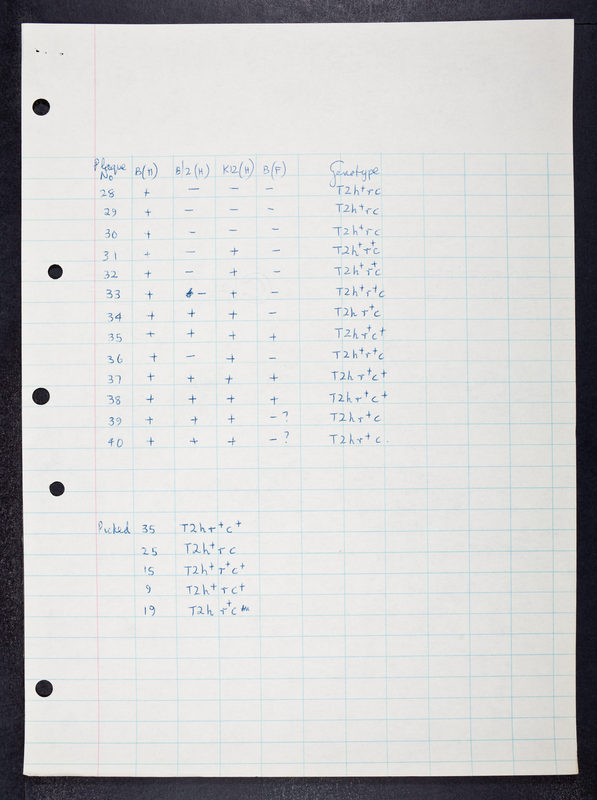 Plaque No B(H) B/2(H) K12(H) B(F) Genotype
28 + — — — T2h⁺rc
29 + — — — T2h⁺rc
30 + — — — T2h⁺rc
31 + — + — T2h⁺r⁺c
32 + — + — T2h⁺r⁺c
33 + — + — T2h⁺r⁺c
34 + + + — T2hr⁺c
35 + + + + T2hr⁺c⁺
36 + — + — T2h⁺r⁺c
37 + + + + T2hr⁺c⁺
38 + + + + T2hr⁺c⁺
39 + + + —? T2hr⁺c
40 + + + —? T2hr⁺c.
Picked 35 T2hr⁺c⁺
25 T2h⁺rc
15 T2h⁺r⁺c⁺
9 T2h⁺rc⁺
19 T2hr⁺c